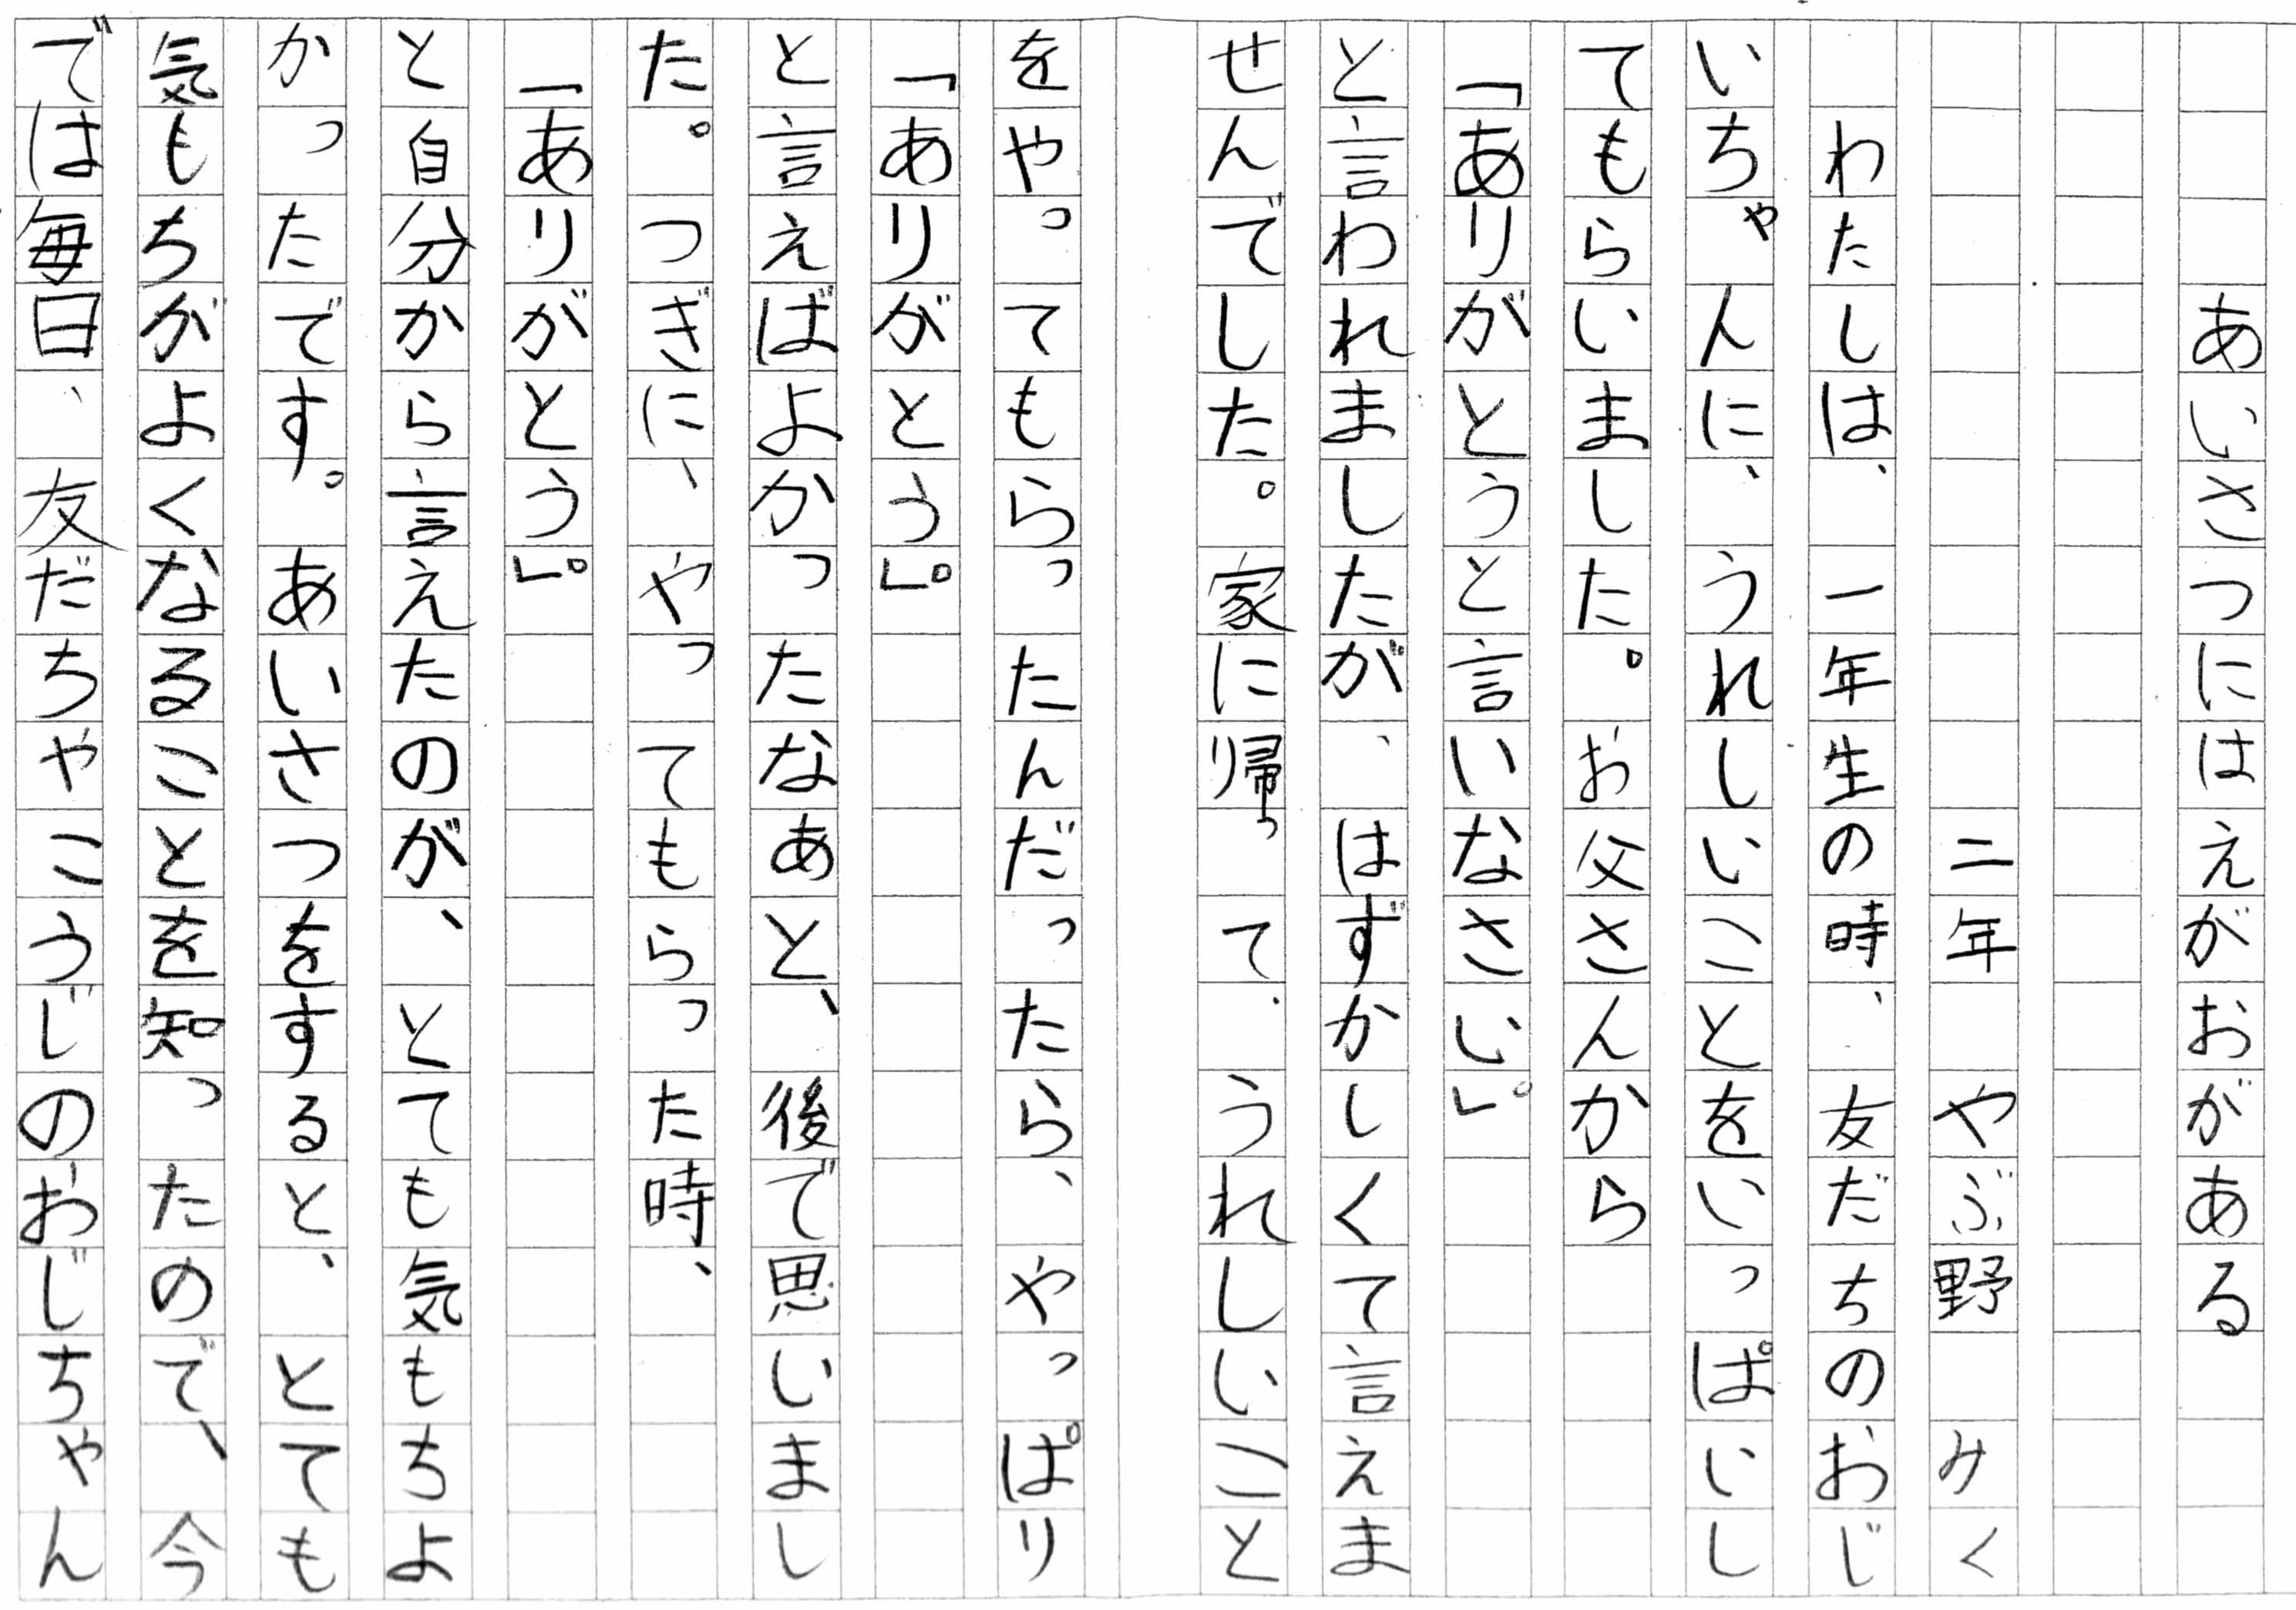 あいさつにはえがおがある
二年　やぶ野　みく
わたしは、一年生の時、友だちのおじ
いちゃんに、うれしいことをいっぱいし
てもらいました。お父さんから
「ありがとうと言いなさい」。
と言われましたが、はずかしくて言えま
せんでした。家に帰って、うれしいこと
をやってもらったんだったら、やっぱり
「ありがとう」。
と言えばよかったなあと、後で思いまし
た。つぎに、やってもらった時、
「ありがとう」。
と自分から言えたのが、とても気もちよ
かったです。あいさつをすると、とても
気もちがよくなることを知ったので、今
では毎日、友だちやこうじのおじちゃん